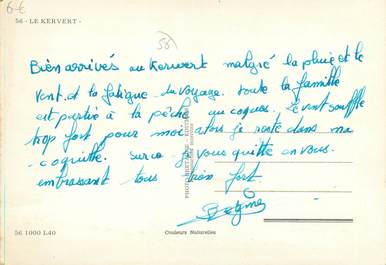 6 €
56 - LE KERVERT -
56
Bien arrivés au Kervert malgré la pluie et le
vent et la fatigue du voyage. toute la famille
est partie à la pêche au coques. Le vent souffle
trop fort pour moi alors je reste dans ma
coquille. Sur ce je vous quitte en vous
embrassant tous bien fort
56 1000 L40
Couleurs Naturelles